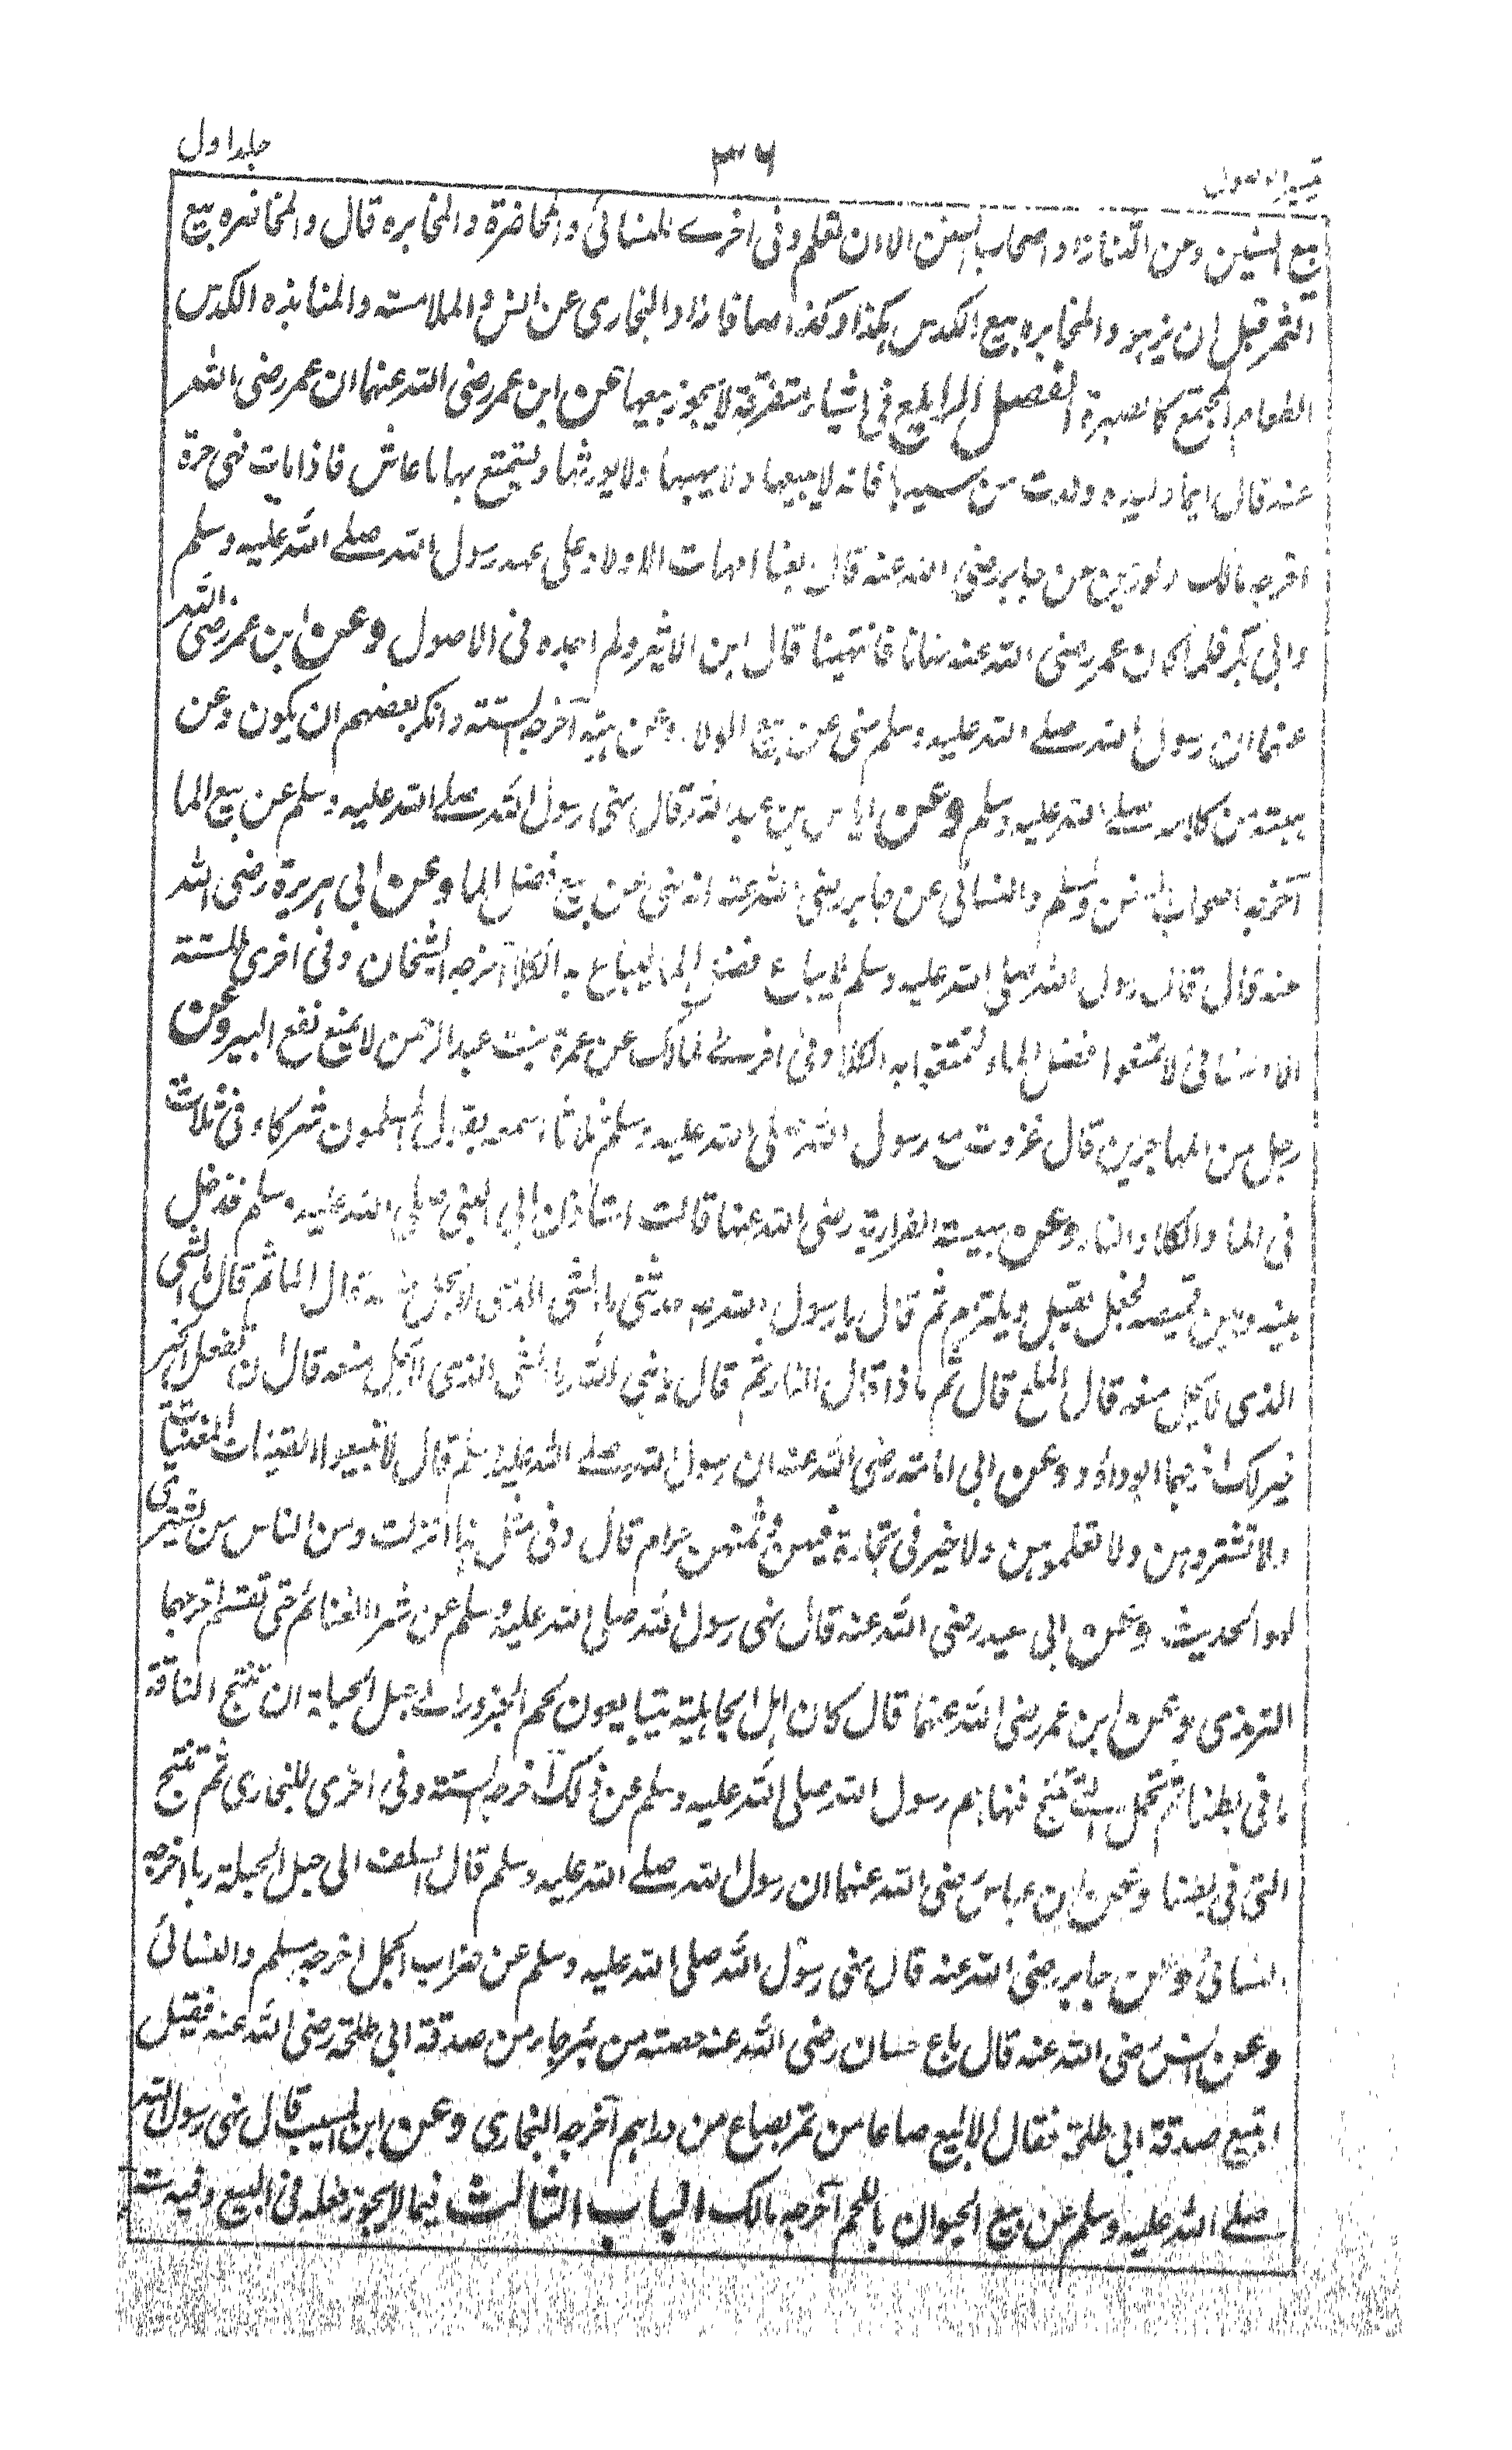 تيسير الوصول ٣٦ جلد اول
بيع السنين وعن الثنيا زاد اصحاب السنن الا ان تعلم وفى اخرے للنسائى والمحاضرة والمخابره قال والمخاضره بيع
الثمر قبل ان يزهو والمخابره بيع الكدس بكذا وكذا صاعا زاد البخارى عن انس والملامسته والمنابذه الكدس
الطعام المجتمع كالصبرة الفصل الرابع فى اشياء متفرقة لا يجوز بيعها عن ابن عمر رضى الله عنهما ان عمر رضى الله
عنه قال ايما وليده ولدت من سيدها فانه لا يبيعها ولا يهبها ولا يورثها ويستمتع بها ما عاش فاذا مات فهى حرة
اخرجه مالك ولرزين عن جابر رضى الله عنه قال بعنا امهات الاولاد على عهد رسول الله صلے الله عليه وسلم
وابى بكر فلما كان عمر رضى الله عنه نهانا فانتهينا قال ابن الاثير ولم اجده فى الاصول وعن ابن عمر رضى الله
عنهما ان رسول الله صلے الله عليه وسلم نهى عن بيع الولاء وعن هبته آخرجه الستته وانكر بعضهم ان يكون وعن
هبته من كلامه صلے الله عليه وسلم وعن اياس بن عبد الله قال نهى رسول الله صلے الله عليه وسلم عن بيع الما
آخرجه اصحاب السنن ولمسلم والنسائى عن جابر رضى الله عنه انه نهى عن بيع فضل الما وعن ابى هريرة رضى الله
عنه قال قال رسول الله صلى الله عليه وسلم لا يباع فضل الما ليباع به الكلا آخرجه الشيخان وفى اخرى للستة
الا النسائى لا تمنعوا فضل الماء لتمنعوا به الكلا وفى اخرے لمالك عن عمرة بنت عبد الرحمن لا يمنع نفع البير وعن
رجل من المهاجرين قال غزوت مع رسول الله صلى الله عليه وسلم ثلاثا اسمعه يقول المسلمون شركاء فى ثلاث
فى الما والكلا والنار وعن بهيسة الفزارية رضى الله عنها قالت استاذن ابى النبى صلى الله عليه وسلم فدخل
بينه وبين قميصه فجعل يقبل ويلتزم ثم قال يا رسول الله حدثنى ما الشى الذى لا يحل منعه قال الما ثم قال ما الشى
الذى لا يحل منعه قال الملح قال ثم ماذا قال النار ثم قال يا نبى الله ما الشى الذى لا يحل منعه قال ان تفعل الخير
خير لك اخرجهما ابو داؤد وعن ابى امامته رضى الله عنه ان رسول الله صلے الله عليه وسلم قال لا تبيعوا القينات المغنيات
ولا تشتروهن ولا تعلموهن ولا خير فى تجارة فيهن وثمنهن حرام قال وفى مثل هذا انزلت ومن الناس من يشترى
لهو الحديث وعن ابى سعيد رضى الله عنه قال نهى رسول الله صلى الله عليه وسلم عن شراء الغنائم حتى تقسم اخرجهما
الترمذى وعن ابن عمر رضى الله عنهما قال كان اهل الجاهليته يتبايعون لحم الجزور الے حبل الحبلة ان تنتج الناقة
ما فى بطنها ثم تحمل التى نتجت فنهاهم رسول الله صلى الله عليه وسلم عن ذلك آخرجه الستته وفى اخرى للبخارى ثم تنتج
التى فى بطنها وعن ابن عباس رضى الله عنهما ان رسول الله صلے الله عليه وسلم قال السلف الى حبل الحبلة ربا اخرجه
النسائى وعن جابر رضى الله عنه قال نهى رسول الله صلى الله عليه وسلم عن ضراب الجمل اخرجه مسلم والنسائى
وعن انس رضى الله عنه قال باع حسان رضى الله عنه حصته من بئر حاء من صدقة ابى طلحة رضى الله عنه فقيل
اتبيع صدقة ابى طلحة فقال الا ابيع صاعا من تمر بصاع من دراهم آخرجه البخارى وعن ابن المسيب قال نهى رسول الله
صلے الله عليه وسلم عن بيع الحيوان باللحم آخرجه مالك الباب الثالث فيما لا يجوز فعله فى البيع وفيه ستة